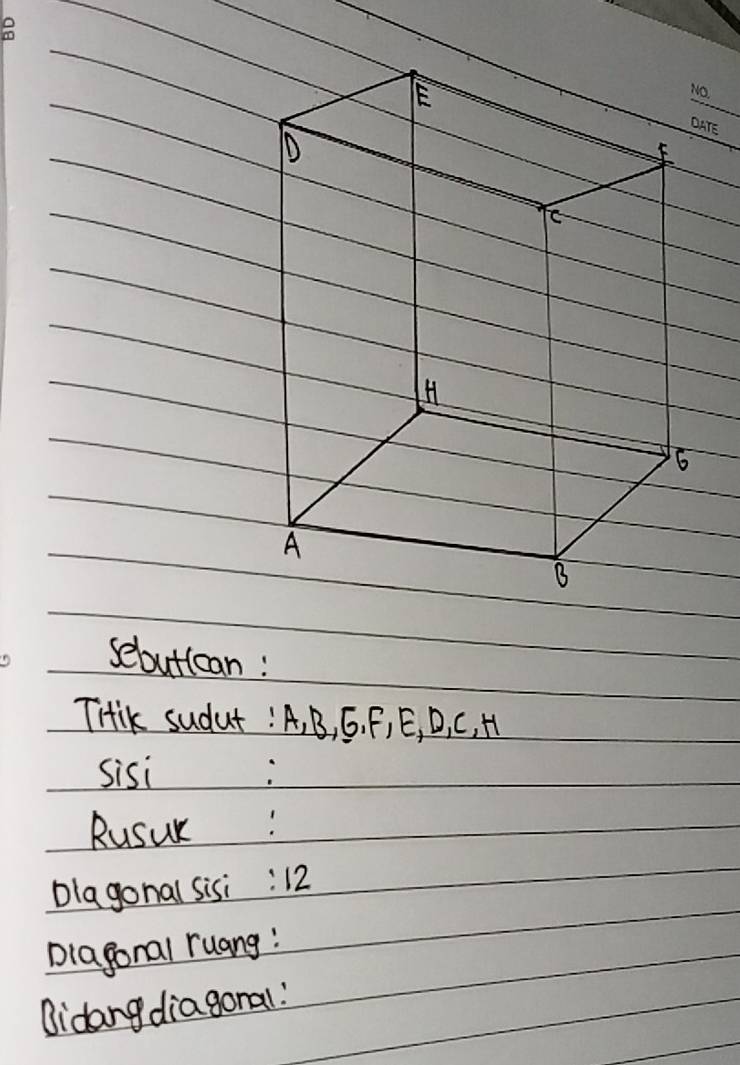 BD
NO.
DATE
E
D
F
C
H
G
A
B
Sebutkan :
Titik sudut : A, B, G, F, E, D, C, H
Sisi :
Rusuk :
Diagonal sisi : 12
Diagonal ruang :
Bidang diagonal :